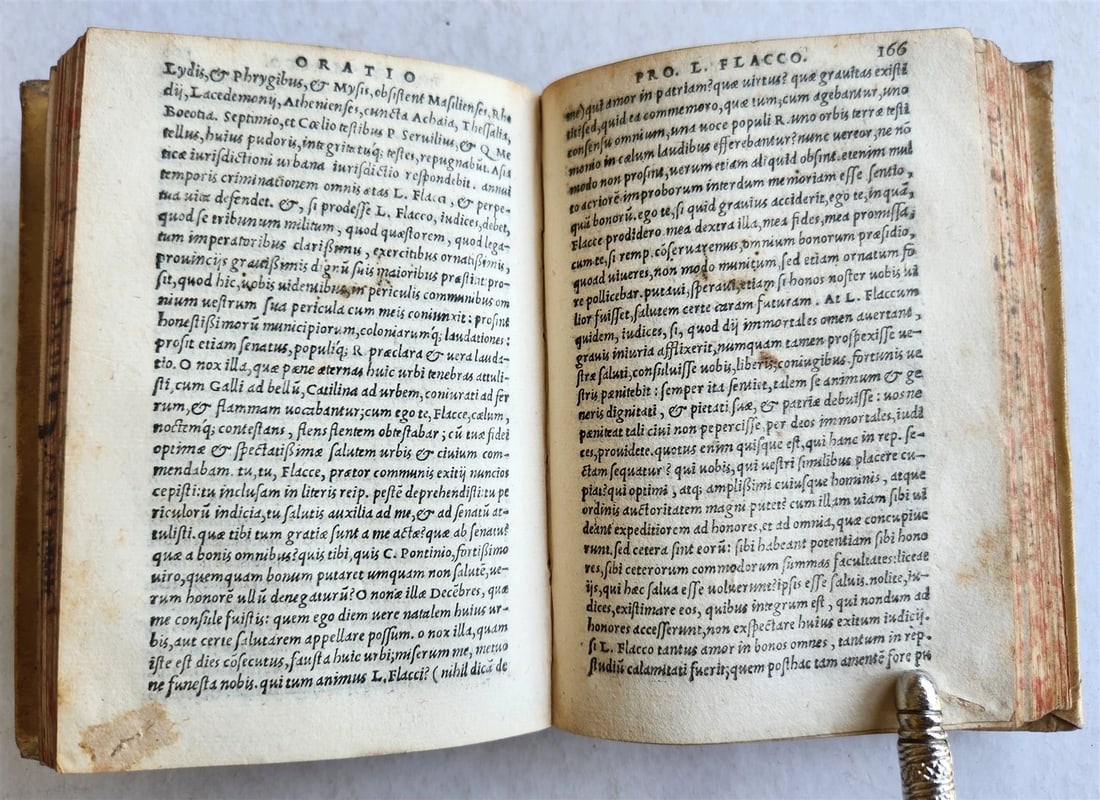 ORATIO
Lydis, & Phrygibus, & Mysis, obsistent Masilienses, Rho
dij, Lacedemonij, Athenienses, cuncta Achaia, Thessalia,
Bœotia. Septimio, et Cœlio testibus P. Seruilius, & Q. Me
tellus, huius pudoris, integritatisq; testes, repugnabūt. Asia
ticæ iurisdictioni urbana iurisdictio respondebit. annui
temporis criminationem omnis ætas L. Flacci, & perpe-
tua uita defendet. &, si prodesse L. Flacco, iudices, debet,
quod se tribunum militum, quod quæstorem, quod lega-
tum imperatoribus clarißimis, exercitibus ornatißimis,
prouincijs grauißimis dignū suis maioribus præstitit: pro-
sit, quod hic, uobis uidentibus, in periculis communibus om
nium uestrum sua pericula cum meis coniunxit: prosint
honestißimorū municipiorum, coloniarumq; laudationes:
prosit etiam senatus, populiq; R. præclara & uera lauda-
tio. O nox illa, quæ pæne æternas huic urbi tenebras attuli-
sti, cum Galli ad bellū, Catilina ad urbem, coniurati ad fer
rum, & flammam uocabantur; cum ego te, Flacce, cælum,
noctemq; contestans, flens flentem obtestabar; cū tuæ fidei
optimæ & spectatißimæ salutem urbis & ciuium com-
mendabam. tu, tu, Flacce, prætor communis exitij nuncios
cepisti: tu inclusam in literis reip. pestē deprehendisti: tu pe
riculorū indicia, tu salutis auxilia ad me, & ad senatū at-
tulisti. quæ tibi tum gratiæ sunt a me actæ? quæ ab senatu?
quæ a bonis omnibus? quis tibi, quis C. Pontinio, fortißimo
uiro, quemquam bonum putaret umquam non salutē, ue-
rum honorē ullū denegaturū? O nonæ illæ Decēbres, quæ
me consule fuistis: quem ego diem uere natalem huius ur-
bis, aut certe salutarem appellare possum. o nox illa, quam
iste est dies cōsecutus, fausta huic urbi; miserum me, metuo
ne funesta nobis. qui tum animus L. Flacci? (nihil dicā de
PRO. L. FLACCO. 166
me) qui amor in patriam? quæ uirtus? quæ grauitas existi
tit? sed, quid ea commemoro, quæ tum, cum agebantur, uno
consensu omnium, una uoce populi R. uno orbis terræ testi
monio in cælum laudibus efferebantur? nunc uereor, ne nō
modo non prosint, uerum etiam aliquid obsint. etenim mul
to acriorē improborum interdum memoriam esse sentio,
quā bonorū. ego te, si quid grauius acciderit, ego te, inquā,
Flacce prodidero. mea dextra illa, mea fides, mea promissa;
cum te, si remp. cōseruaremus, omnium bonorum præsidio,
quoad uiueres, non modo munitum, sed etiam ornatum fo
re pollicebar. putaui, speraui, etiam si honos noster uobis ui
lior fuisset, salutem certe caram futuram. At L. Flaccum
quidem, iudices, si, quod dij immortales omen auertant,
grauis iniuria afflixerit, numquam tamen prospexisse ue-
stræ saluti, consuluisse uobis, liberis, coniugibus, fortunis ue
stris pænitebit: semper ita sentiet, talem se animum & ge
neris dignitati, & pietati suæ, & patriæ debuisse: uos ne
pæniteat tali ciui non pepercisse, per deos immortales, iudi
ces, prouidete. quotus enim quisque est, qui hanc in rep. se-
ctam sequatur? qui uobis, qui uestri similibus placere cu-
piat? qui optimi, atq; amplißimi cuiusque hominis, atque
ordinis auctoritatem magni putet? cum illam uiam sibi ui
deant expeditiorem ad honores, et ad omnia, quæ concupiue
runt. sed cetera sint eorū: sibi habeant potentiam, sibi hono
res, sibi ceterorum commodorum summas facultates: liceat
ijs, qui hæc salua esse uoluerunt? ipsis esse saluis. nolite, iu-
dices, existimare eos, quibus integrum est, qui nondum ad
honores accesserunt, non exspectare huius exitum iudicij.
si L. Flacco tantus amor in bonos omnes, tantum in rep.
studiū calamitati fuerit; quem posthac tam amentē fore pu